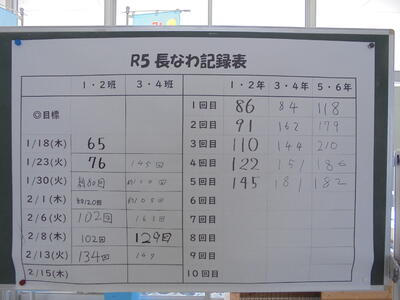 R5 長なわ記録表
1・2班 3・4班
◎目標
1/18(木) 65
1/23(火) 76 145回
1/30(火) 約80回
2/1(木) 約120回
2/6(火) 102回
2/8(木) 102回 129回
2/13(火) 134回
2/15(木)
1・2年 3・4年 5・6年
1回目 86 84 118
2回目 91 162 179
3回目 110 144 210
4回目 122 151 186
5回目 145 181 182
6回目
7回目
8回目
9回目
10回目